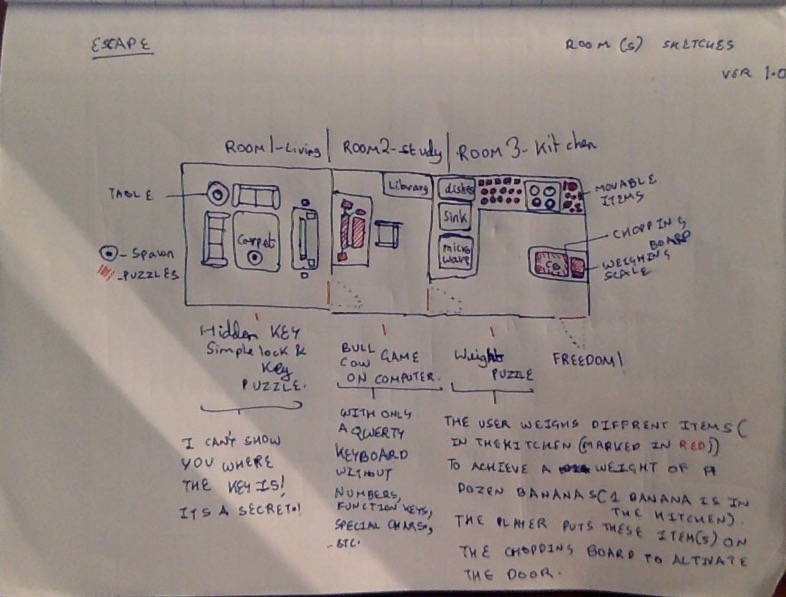 ESCAPE
ROOM(S) SKETCHES
VER 1.0
ROOM 1-Living
ROOM 2-Study
ROOM 3-Kitchen
TABLE
Carpet
- Spawn
- PUZZLES
Library
dishes
Sink
micro
wave
CB
MOVABLE
ITEMS
CHOPPING
BOARD
WEIGHING
SCALE
Hidden KEY
Simple lock &
Key
PUZZLE.
I CAN'T SHOW
YOU WHERE
THE KEY IS!
ITS A SECRET!
BULL
COW GAME
ON COMPUTER.
WITH ONLY
A QWERTY
KEYBOARD
WITHOUT
NUMBERS,
FUNCTION KEYS,
SPECIAL CHARS,
ETC.
Weight
PUZZLE
THE USER WEIGHS DIFFRENT ITEMS(
IN THE KITCHEN (MARKED IN RED))
TO ACHIEVE A WEIGHT OF A
DOZEN BANANAS(1 BANANA IS IN
THE KITCHEN).
THE PLAYER PUTS THESE ITEM(S) ON
THE CHOPPING BOARD TO ACTIVATE
THE DOOR.
FREEDOM!